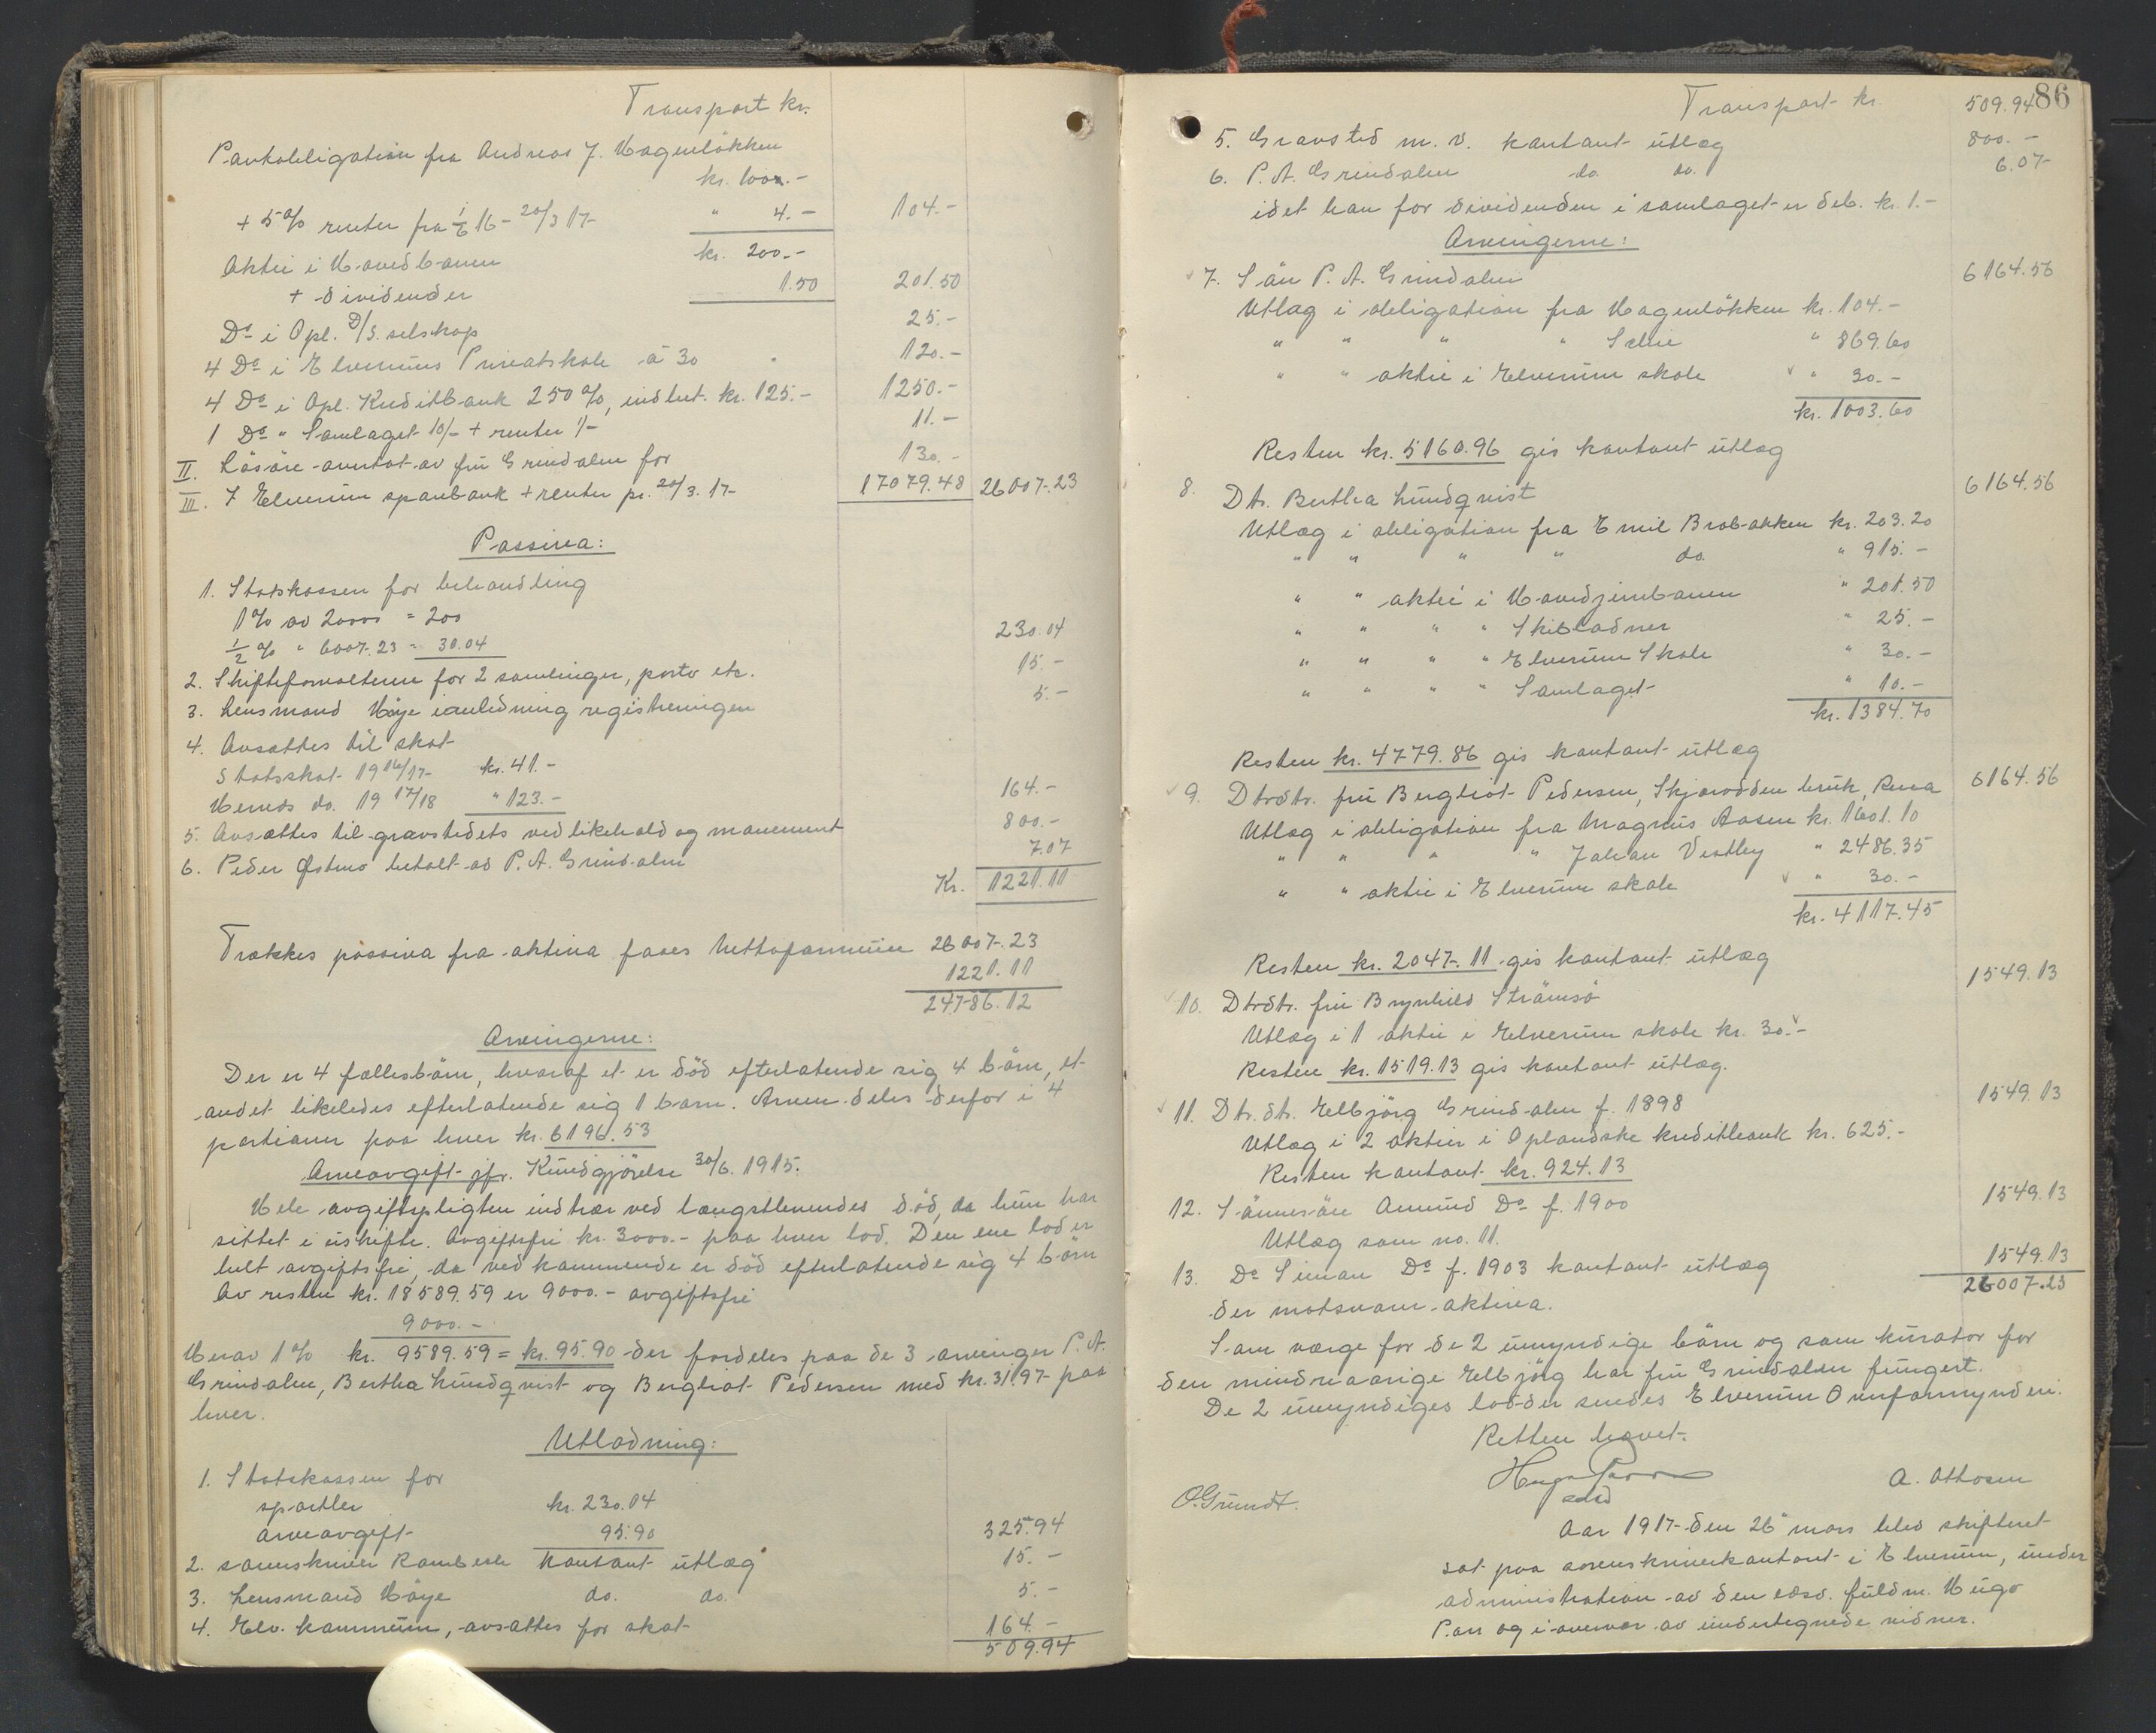 Transport kr.
Pantobligation fra Andreas J. Hagenlökken
kr. 100.-
+ 5% renter fra 1/6 16 - 20/3 17 " 4.- 104.-
Aktie i Hovedbanen kr. 200.-
+ dividender 1.50 201.50
Do i Opl. D/S. selskap 25.-
4 Do i Elverums Privatskole à 30 120.-
4 Do i Opl. Kreditbank 250%, indbet. kr. 125.- 1250.-
1 Do " Samlaget 10/- + renter 1/- 11.-
II. Lösöre overtat av fru Grindalen for 130.-
III. I Elverum sparebank + renter pr. 20/3. 17 17079.48 26007.23
Passiva:
1. Statskassen for behandling
1% av 20000 = 200
1/2 % " 6007.23 = 30.04 230.04
2. Skifteforvalteren for 2 samlinger, porto etc. 15.-
3. Lensmand Höye i anledning registreringen 5.-
4. Avsættes til skat
Statsskat 19 16/17 kr. 41.-
Herreds do. 19 17/18 " 123.- 164.-
5. Avsættes til gravstedets vedlikehold og monument 800.-
6. Peder Østmo betalt av P. A. Grindalen 7.07
Kr. 1221.11
Trækkes passiva fra aktiva faaes Nettoformuen 26007.23
1221.11
24786.12
Arvingerne:
Der er 4 fællesbörn, hvoraf et er död efterlatende sig 4 börn, et
andet likeledes efterlatende sig 1 barn. Arven deles derfor i 4
portioner paa hver kr. 6196.53
Arveavgift jfr. Kundgjörelse 30/6. 1915.
Hele avgiftspligten indtrær ved længstlevendes död, da hun har
sittet i uskifte. Avgiftsfri kr. 3000.- paa hver lod. Den ene lod er
helt avgiftsfri, da vedkommende er död efterlatende sig 4 börn
Av resten kr. 18589.59 er 9000.- avgiftsfri
9000.-
Herav 1% kr. 9589.59 = kr. 95.90 der fordeles paa de 3 arvinger P. A.
Grindalen, Bertha Lundqvist og Bergliot Pedersen med kr. 31.97 paa
hver.
Utlodning:
1. Statskassen for
sportler kr. 230.04
arveavgift 95.90 325.94
2. sorenskriver kontant utlæg 15.-
3. Lensmand Höye do. do. 5.-
4. Elv. kommune, avsættes for skat 164.-
509.94
86
Transport kr. 509.94
5. Gravsted m. v. kontant utlæg 800.-
6. P. A. Grindalen do. do. 6.07
idet han for dividenden i samlaget er deb. kr. 1.-
Arvingerne:
7. Sön P. A. Grindalen 6164.56
Utlæg i obligation fra Hagenlökken kr. 104.-
" " " " Selie " 869.60
" " aktie i Elverum skole " 30.-
kr. 1003.60
Resten kr. 5160.96 gis kontant utlæg
8. Dtr. Bertha Lundqvist 6164.56
Utlæg i obligation fra Emil Brobakken kr. 203.20
" " " " do. " 915.-
" " aktie i Hovedjernbanen " 201.50
" " " " Skibladner " 25.-
" " " " Elverum Skole " 30.-
" " " " Samlaget " 10.-
kr. 1384.70
Resten kr. 4779.86 gis kontant utlæg
9. Dtrdtr. fru Bergliot Pedersen, Skjærodden bruk, Rena 6164.56
Utlæg i obligation fra Magnus Aasen kr. 1601.10
" " " " Johan Vestby " 2486.35
" " aktie i Elverum skole " 30.-
kr. 4117.45
Resten kr. 2047.11 gis kontant utlæg
10. Dtrdtr. fru Brynhild Strömsö 1549.13
Utlæg i 1 aktie i Elverum skole kr. 30.-
Resten kr. 1519.13 gis kontant utlæg.
11. Dtr. dtr. Elbjörg Grindalen f. 1898 1549.13
Utlæg i 2 aktier i Oplandske kreditbank kr. 625.-
Resten kontant kr. 924.13
12. Sönnesön Amund Do f. 1900 1549.13
Utlæg som no. 11.
13. Do Simon Do f. 1903 kontant utlæg 1549.13
26007.23
der motsvarer aktiva.
Som værge for de 2 umyndige börn og som kurator for
den mindreaarige Elbjörg har fru Grindalen fungert.
De 2 umyndiges lodder sendes Elverum Overformynderi.
Retten hævet.
O. Grundt. A. Ottosen
Aar 1917 den 26 mars blev skifteret
sat paa sorenskriverkontoret i Elverum, under
administration av den edsv. fuldm. Hugo
Parr og i overvær av undertegnede vidner.